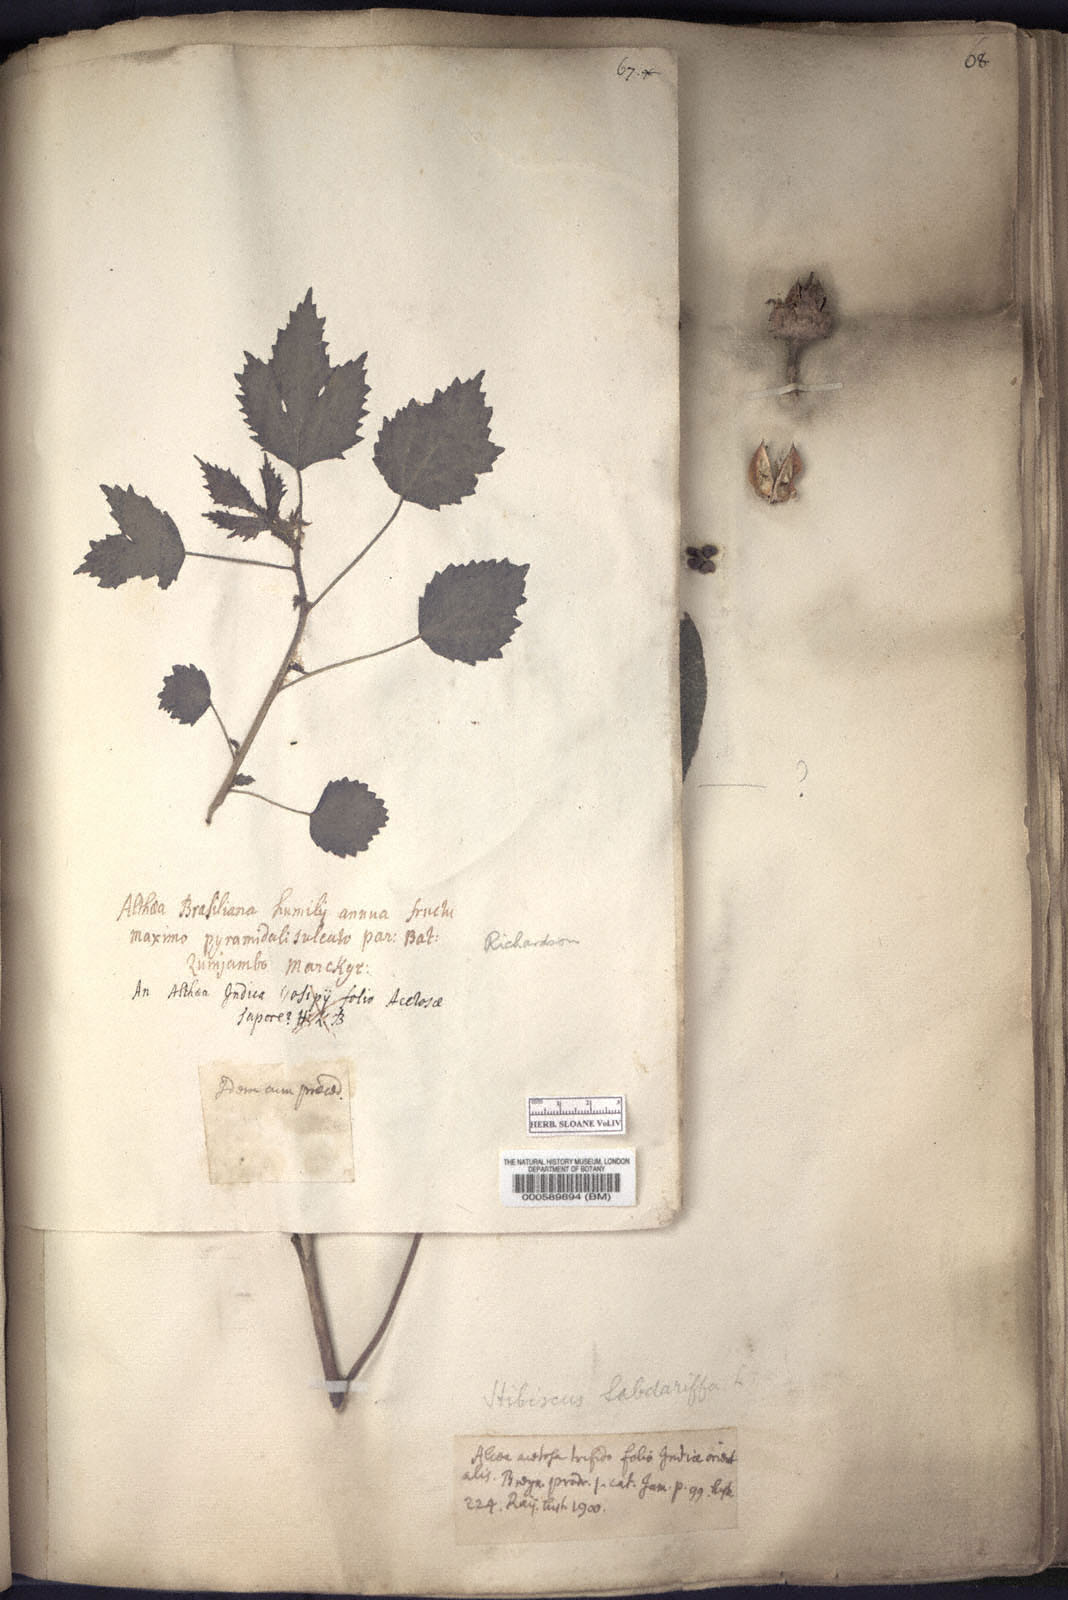 67.
68
Althæa Brasiliana humilis annua fructu
maximo pyramidali sulcato par: Bat:
Marckgr:
Richardson
An Althæa Indica Gosipij folio Acetosæ
sapore? H: L: B
Idem cum præced.
HERB. SLOANE Vol.IV
THE NATURAL HISTORY MUSEUM, LONDON
DEPARTMENT OF BOTANY
000589894 (BM)
?
Hibiscus Sabdariffa L
Alcea acetosa trifido folio Indiæ orient
alis. Breyn. prodr. cat. Jam. p. 99. hist.
224. Raij. hist. 1900.